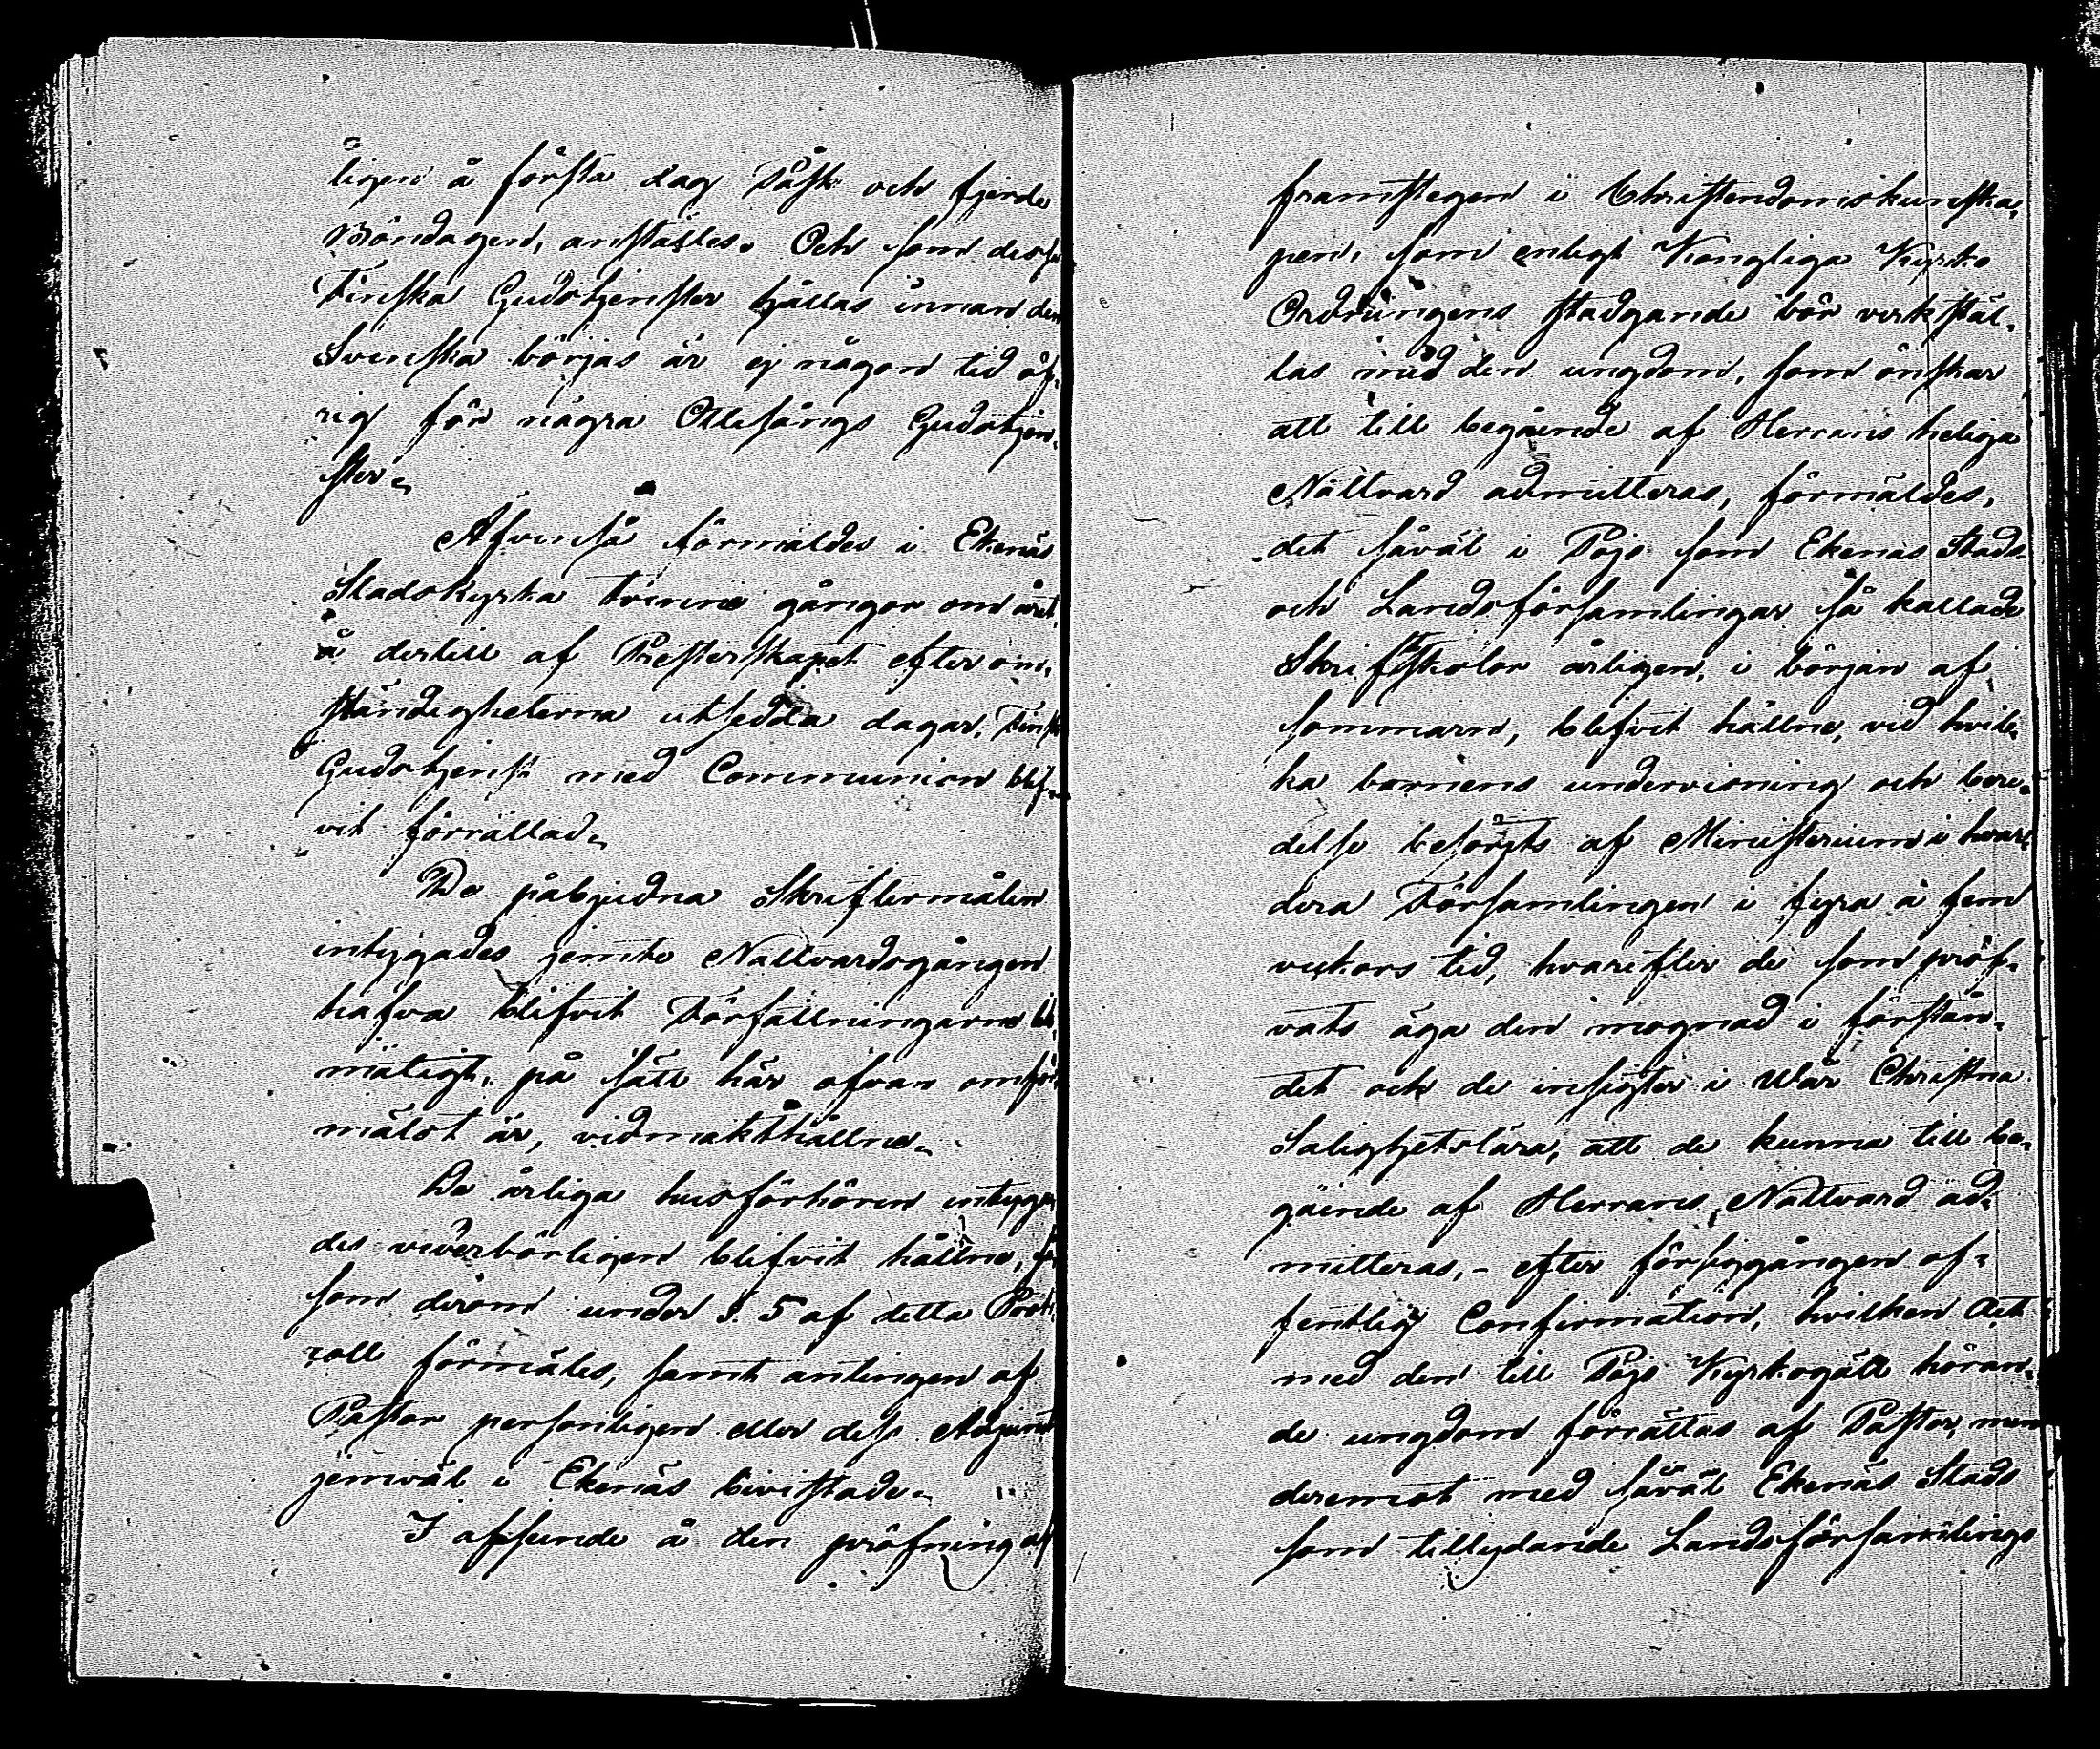 ligen å första dag Påsk och fjerde
Böndagen, anställes. Och som desse
Finska Gudstjenster hållas innan den
Svenska börjas är ej någon tid öf-
rig för några Ottesångs Gudstjen-
ster.
Äfvenså förmäldes i Ekenäs
Stadskyrka tvenne gångor om året,
å dertill af Presterskapet efter om-
ständigheterna utsedda dagar, Finsk
Gudstjenst med Communion blif-
vit förrättad.
De påbjudna Skriftermålen
intygades jemte Nattvardsgången
hafva blifvit Författningarne lik-
mätigt, på sätt här ofvan omför-
mäldt är, vidmakthållne.
De årliga husförhören intyga-
des vederbörligen blifvit hållne,
som derom under §. 5 af detta Proto-
coll förmäles, samt antingen af
Pastor personligen eller dess Adjunct
jemväl i Ekenäs bivistade.
I afseende å den pröfning af
framstegen i Christendomskunska-
pen, som enligt Kongliga Kyrko
Ordningens stadgande bör verkstäl-
las med den ungdom, som önskar
att till begående af Herrans heliga
Nattvard admitteras, förmäldes,
det såväl i Pojo som Ekenäs Stads-
och Landsförsamlingar så kallade
Skriftskolor årligen, i början af
sommarn, blifvit hållne, vid hvil-
ka barnens undervisning och bere-
delse besörgts af Ministerium i hvar-
dera Församlingen i fyra à fem
veckors tid, hvarefter de som pröf-
vats äga den mognad i förstån-
det och de insigter i Vår Christna
Salighetslära, att de kunna till be-
gående af Herrans Nattvard ad-
mitteras, - efter försiggången of-
fentlig Confirmation, hvilken Act
med den till Pojo Kyrkogäll höran-
de ungdom förrättas af Pastor, men
deremot med såväl Ekenäs Stads
som tillydande Landsförsamlings